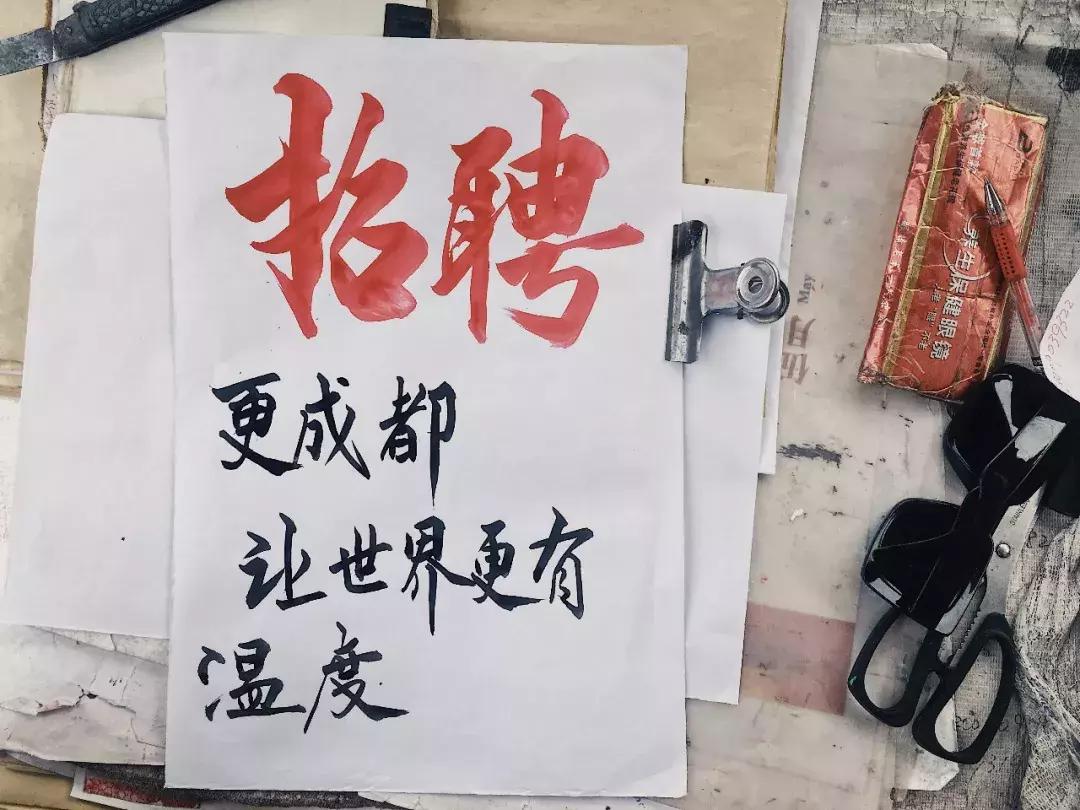 招聘
更成都
让世界更有
温度
May
伍月
养生保健眼镜